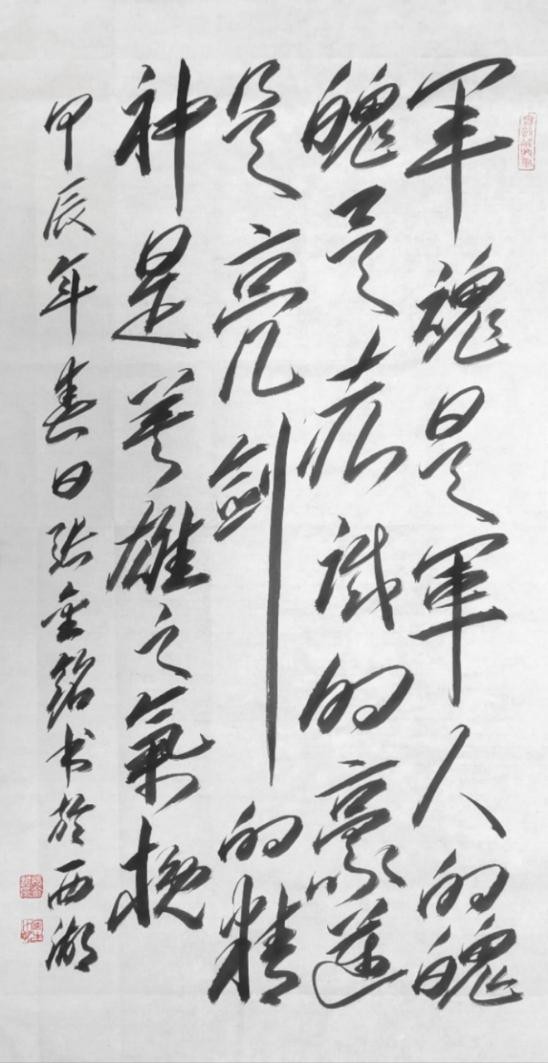 軍魂是軍人的魄
魄是赤誠的豪邁
是亮劍的精
神是英雄之氣概
甲辰年春日张金銘书於西湖